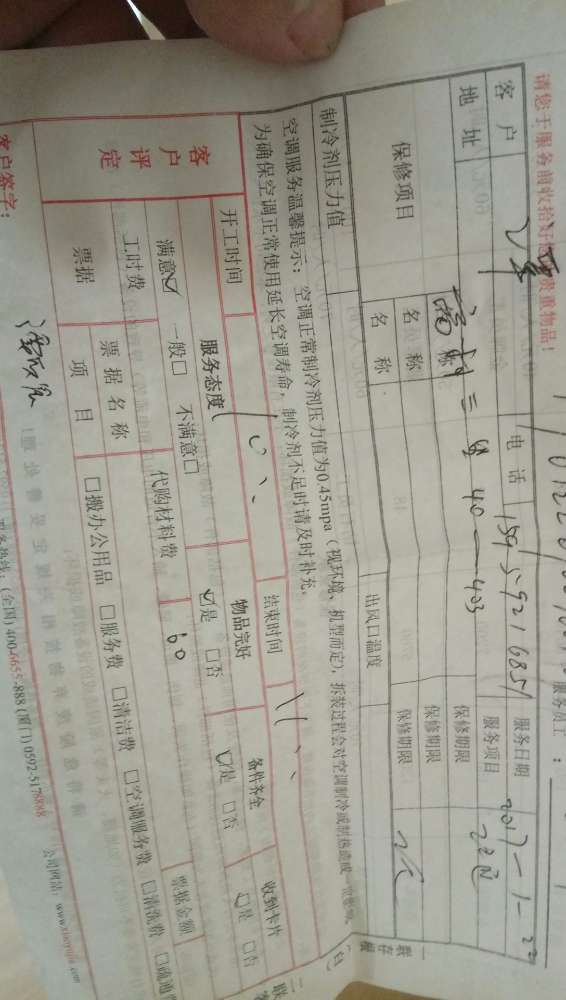 请您于服务前收拾好您的贵重物品！
服务员工：
客户 电话 15959216851 服务日期 2017-1-22
地址 40-403 服务项目
保修项目 名称 保修期限
名称 保修期限
名称 保修期限
制冷剂压力值 出风口温度
空调服务温馨提示：空调正常制冷剂压力值为0.45mpa（视环境、机型而定），拆装过程会对空调制冷或制热造成
为确保空调正常使用延长空调寿命，制冷剂不足时请及时补充。
一联存根（白）
开工时间 结束时间
客户评定 服务态度 物品完好 备件齐全 收到卡片
满意☑ 一般□ 不满意□ ☑是 □否 ☑是 □否 ☑是 □否
工时费 代购材料费 60 票据金额
票据 票据名称
项目 □搬办公用品 □服务费 □清洁费 □空调服务费 □清洗费 □疏通
客户签字：
(全国) 400-6655-888 (厦门) 0592-5178888 公司网站：www.xiaoyujia.com